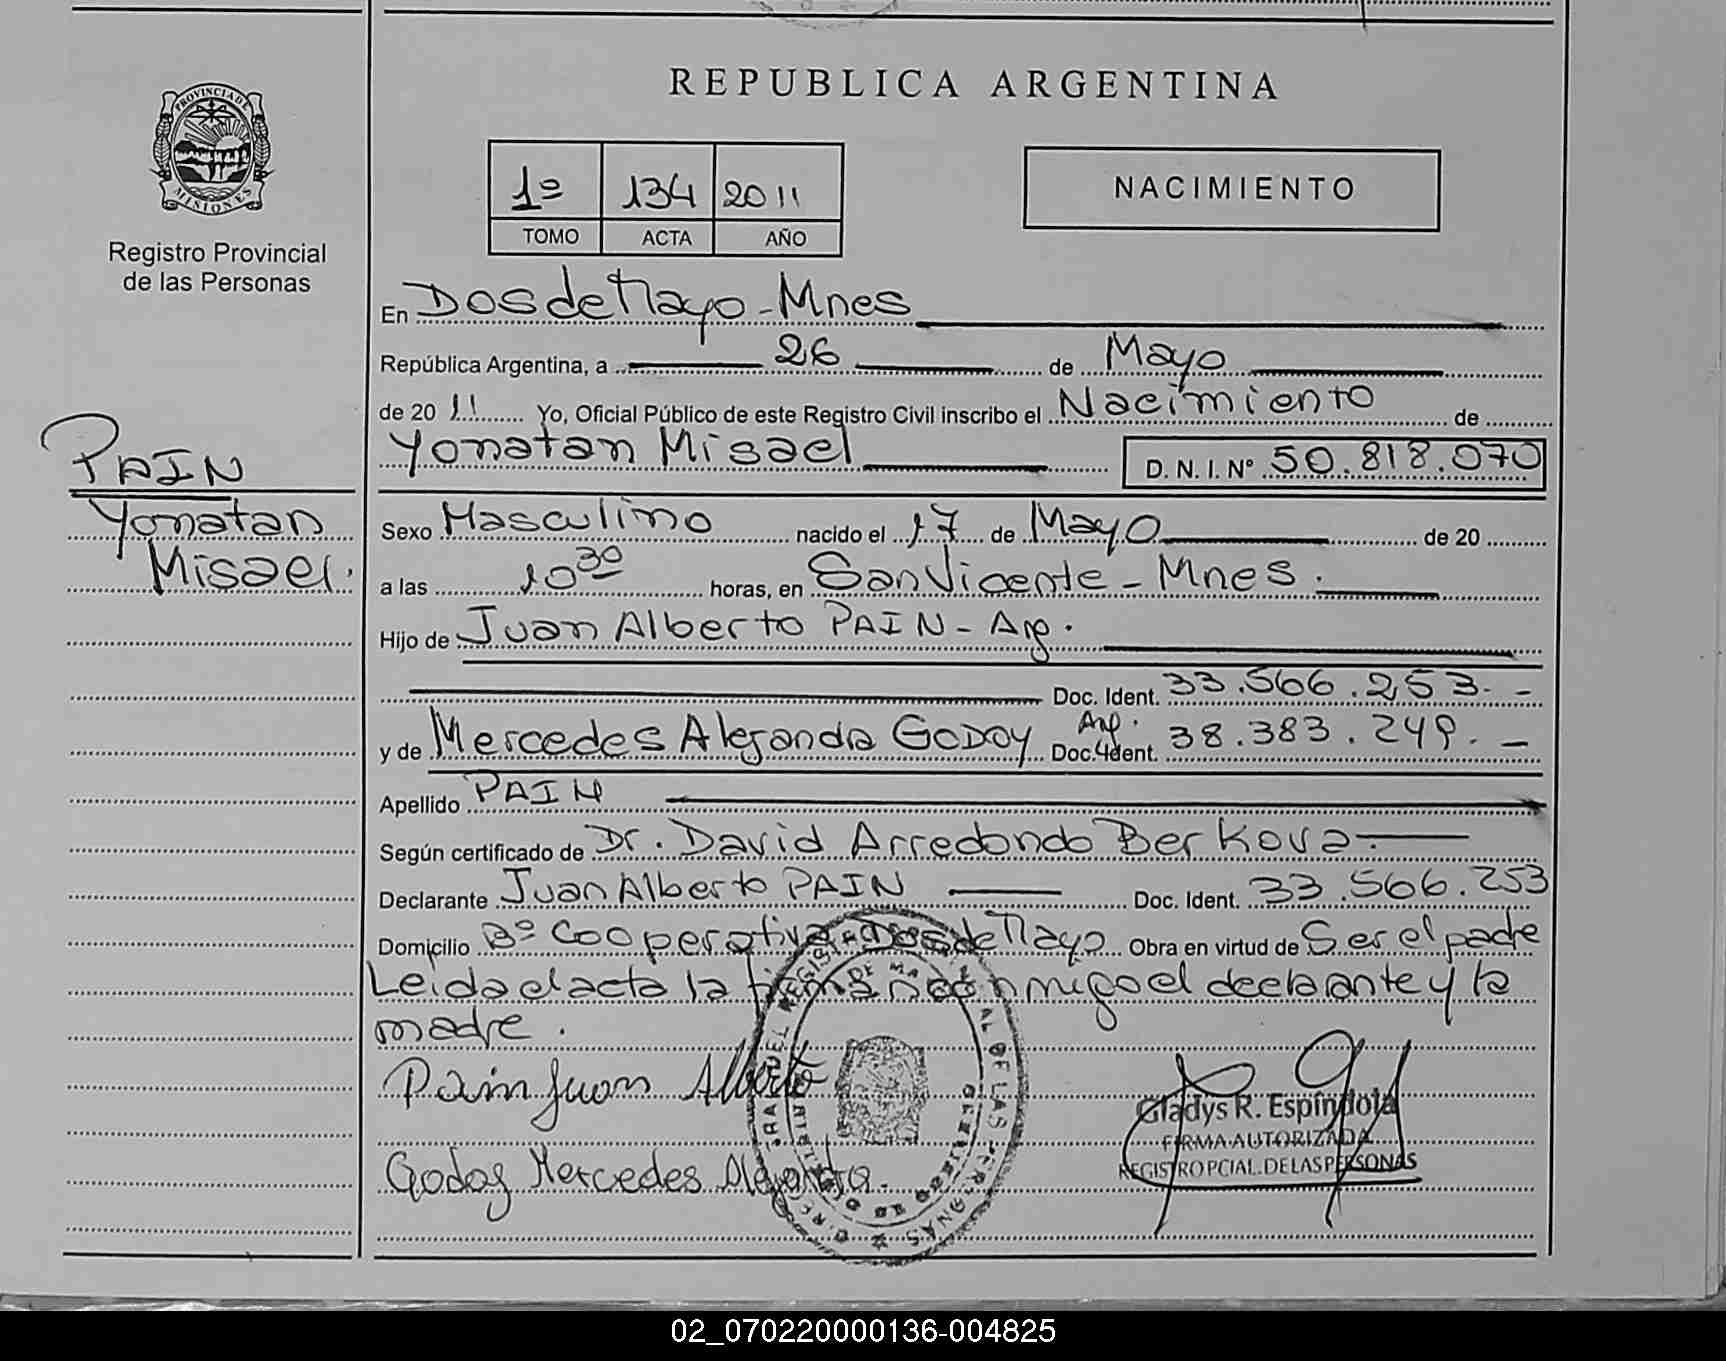 REPUBLICA ARGENTINA
PROVINCIA DE
MISIONES
Registro Provincial
de las Personas
1º 134 2011
TOMO ACTA AÑO
NACIMIENTO
En Dos de Mayo - Mnes
República Argentina, a 26 de Mayo
de 20 11 Yo, Oficial Público de este Registro Civil inscribo el Nacimiento de
Yonatan Misael D. N. I. Nº 50.818.070
PAIN
Yonatan
Misael.
Sexo Masculino nacido el 17 de Mayo de 20
a las 10 30 horas, en San Vicente - Mnes.
Hijo de Juan Alberto PAIN - Arg.
Doc. Ident. 33.566.253. -
y de Mercedes Alejandra GODOY Arg. Doc. Ident. 38.383.249. -
Apellido PAIN
Según certificado de Dr. David Arredondo Berkova
Declarante Juan Alberto PAIN Doc. Ident. 33.566.253
Domicilio Bº Cooperativa Dos de Mayo Obra en virtud de Ser el padre
Leida el acta la firman conmigo el declarante y la
madre.
Pain Juan Alberto
Godoy Mercedes Alejandra.
Gladys R. Espíndola
FIRMA AUTORIZADA
REGISTRO PCIAL. DE LAS PERSONAS
02_070220000136-004825